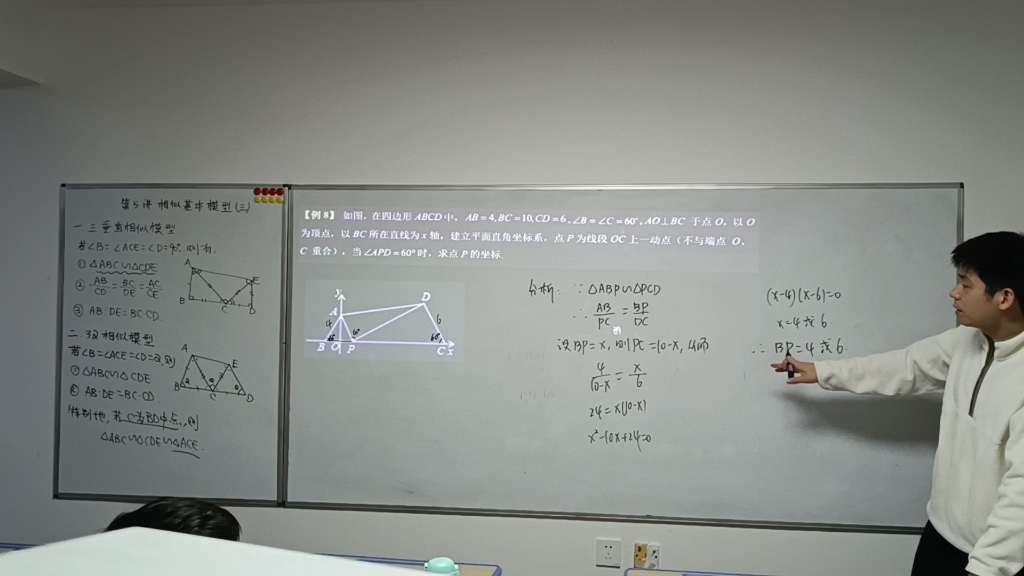 第5讲 相似基本模型(三)
一 三垂直相似模型
若∠B=∠ACE=∠D=90°, 则有.
① △ABC∽△CDE
② AB/CD=BC/DE=AC/CE
③ AB·DE=BC·CD
A
E
B
C
D
二. 3α相似模型
若∠B=∠ACE=∠D=α, 则
① △ABC∽△CDE
② AB·DE=BC·CD
特别地, 若C为BD中点, 则
△ABC∽△CDE∽△ACE.
A
E
B
C
D
【例 8】 如图, 在四边形 ABCD 中, AB=4, BC=10, CD=6, ∠B=∠C=60°, AO⊥BC 于点 O, 以 O
为顶点, 以 BC 所在直线为 x 轴, 建立平面直角坐标系, 点 P 为线段 OC 上一动点 (不与端点 O、
C 重合), 当∠APD=60°时, 求点 P 的坐标.
y
A
D
4
6
60°
B O P
C x
分析: ∵△ABP∽△PCD
∴ AB/PC=BP/DC
设BP=x, 则PC=10-x, 从而
4/10-x=x/6
24=x(10-x)
x²-10x+24=0
(x-4)(x-6)=0
x=4或6.
∴ BP=4或6.